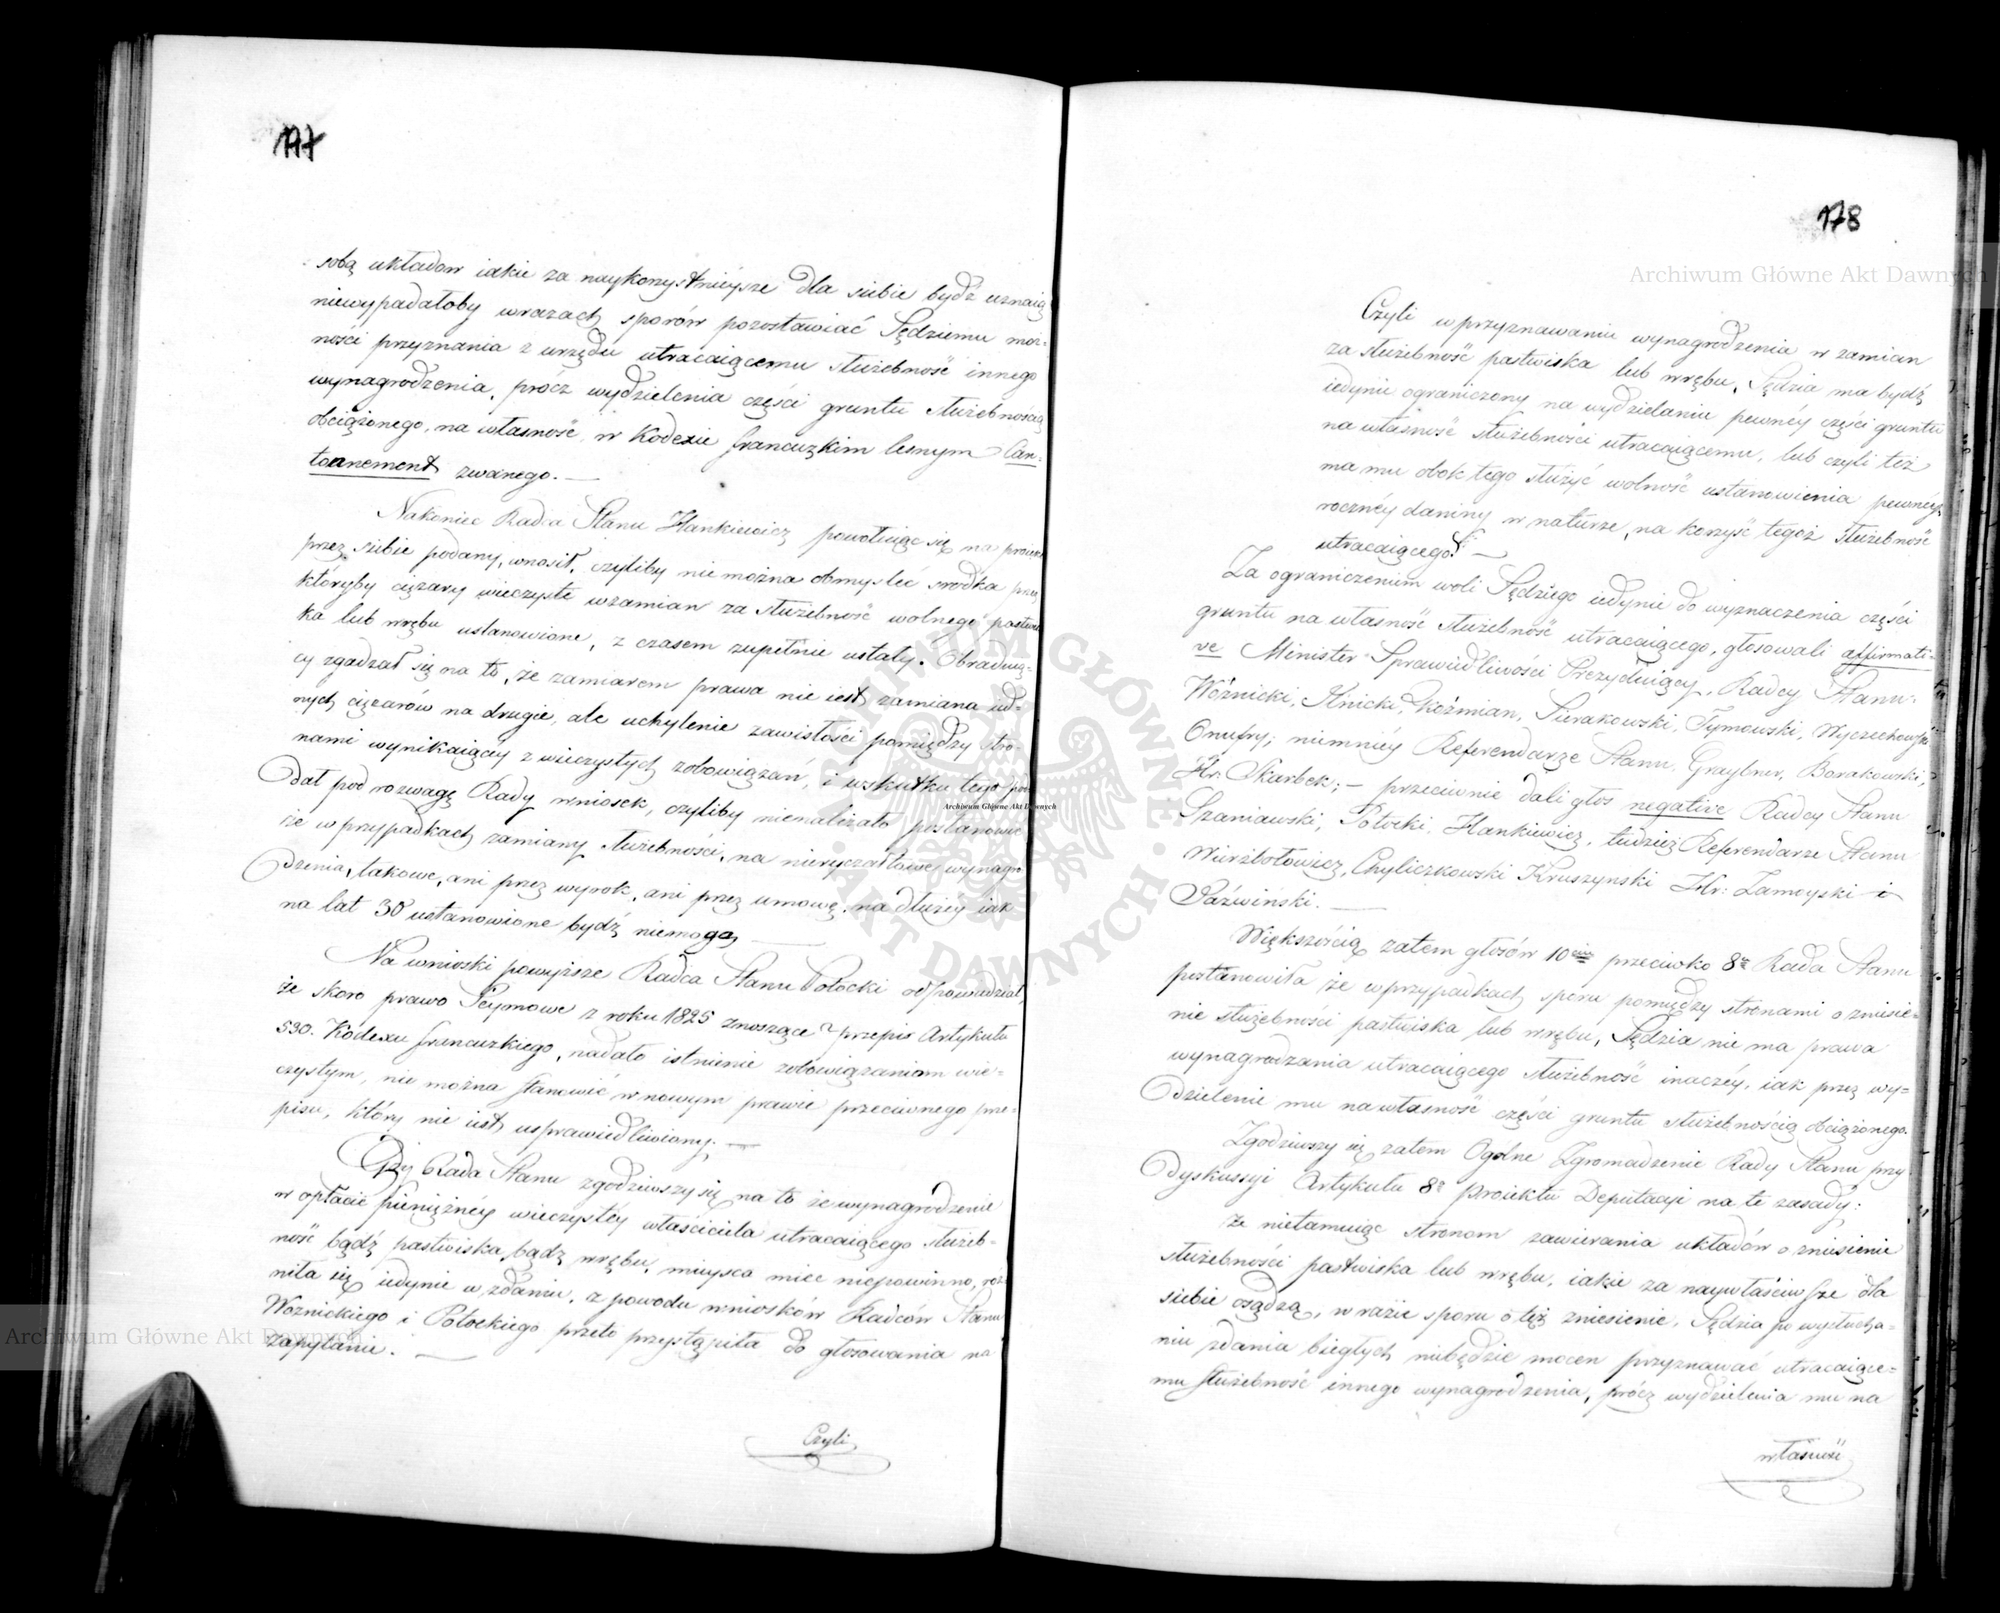 177
sobą układow iakie za naykorzystnieysze dla siebie bydź uznaią
niewypadałoby wrazach sporów pozostawiać Sędziemu moż-
ności przyznania z urzędu utracaiącemu służebność innego
wynagrodzenia, prócz wydzielenia części gruntu służebnością
obciążonego, na własność, w Kodexie francuzkim lesnym Can-
tonnement zwanego. —
Nakoniec Radca Stanu Hankiewicz powołuiąc się na proiekt
przez siebie podany, wnosił, czyliby nie można obmysleć srodka przez
któryby ciężary wieczyste wzamian za służebność wolnego pastwis
ka lub wrębu ustanowione, z czasem zupełnie ustały. Obraduią-
cy zgadzał się na to, że zamiarem prawa nie iest zamiana ied-
nych ciężarów na drugie, ale uchylenie zawisłości pomiędzy stro-
nami wynikaiącéy z wieczystych zobowiązań, i wskutku tego pod
dał pod rozwagę Rady wniosek, czyliby nienależało postanowić
że w przypadkach zamiany służebności, na nieryczałtowe wynagro
dzenia, takowe, ani przez wyrok, ani przez umowę, na dłużéy iak
na lat 30 ustanowione bydź niemogą —
Na wnioski powyższe Radca Stanu Potocki odpowiedział,
że skoro prawo Seymowe z roku 1825 znoszące przepis Artykułu
530. Kodexu francuzkiego, nadało istnienie zobowiązaniom wie-
czystym, nie można stanowić w nowym prawie przeciwnego prze-
pisu, który nie iest usprawiedliwiony. —
Gdy Rada Stanu zgodziwszy się na to że wynagrodzenie
w opłacie pieniężnéy wieczystéy właściciela utracaiącego służeb-
ność bądź pastwiska bądź wrębu, mieysca mieć niepowinno, róż-
niła się iedynie w zdaniu, z powodu wniosków Radców Stanu
Woźnickiego i Potockiego przeto przystąpiła do głosowania na
zapytanie. —
Czyli
178
Czyli w przyznawaniu wynagrodzenia w zamian
za służebność pastwiska lub wrębu, Sędzia ma bydź
iedynie ograniczony na wydzielaniu pewnéy części gruntu
na własność służebności utracaiącemu, lub czyli też
ma mu obok tego służyć wolność ustanowienia pewnéy
rocznéy daniny w naturze, na korzyść tegoż służebność
utracaiącego? —
Za ograniczeniem woli Sędziego iedynie do wyznaczenia części
gruntu na własność służebność utracaiącego, głosowali affirmati-
ve Minister Sprawiedliwości Prezyduiący, Radcy Stanu
Woźnicki, Knicki, Koźmian, Sierakowski, Tymowski, Wyczechowski
Onufry; niemniéy Referendarze Stanu, Graybner, Borakowski,
Hr: Skarbek; — przeciwnie dali głos negative Radcy Stanu
Szaniawski, Potocki, Hankiewicz, tudzież Referendarze Stanu
Wierzbołowicz, Chyliczkowski Kruszynski Hr: Zamoyski i
Paźwiński. —
Większością zatem głosów 10ciu przeciwko 8u Rada Stanu
postanowiła że w przypadkach sporu pomiędzy stronami o zniesie-
nie służebności pastwiska lub wrębu, Sędzia nie ma prawa
wynagrodzania utracaiącego służebność inaczéy, iak przez wy-
dzielenie mu na własność części gruntu służebnością obciążonego.
Zgodziwszy się zatem Ogólne Zgromadzenie Rady Stanu przy
dyskussyi Artykułu 8o proiektu Deputacyi na te zasady;
że nietamuiąc stronom zawierania układów o zniesienie
służebności pastwiska lub wrębu, iakie za naywłaściwsze dla
siebie osądzą, w razie sporu o też zniesienie, Sędzia po wysłucha-
niu zdania biegłych niebędzie mocen przyznawać utracaiące-
mu służebność innego wynagrodzenia, prócz wydzielenia mu na
własność
Archiwum Główne Akt Dawnych
Archiwum Główne Akt Dawnych
Archiwum Główne Akt Dawnych
ARCHIWUM GŁÓWNE AKT DAWNYCH